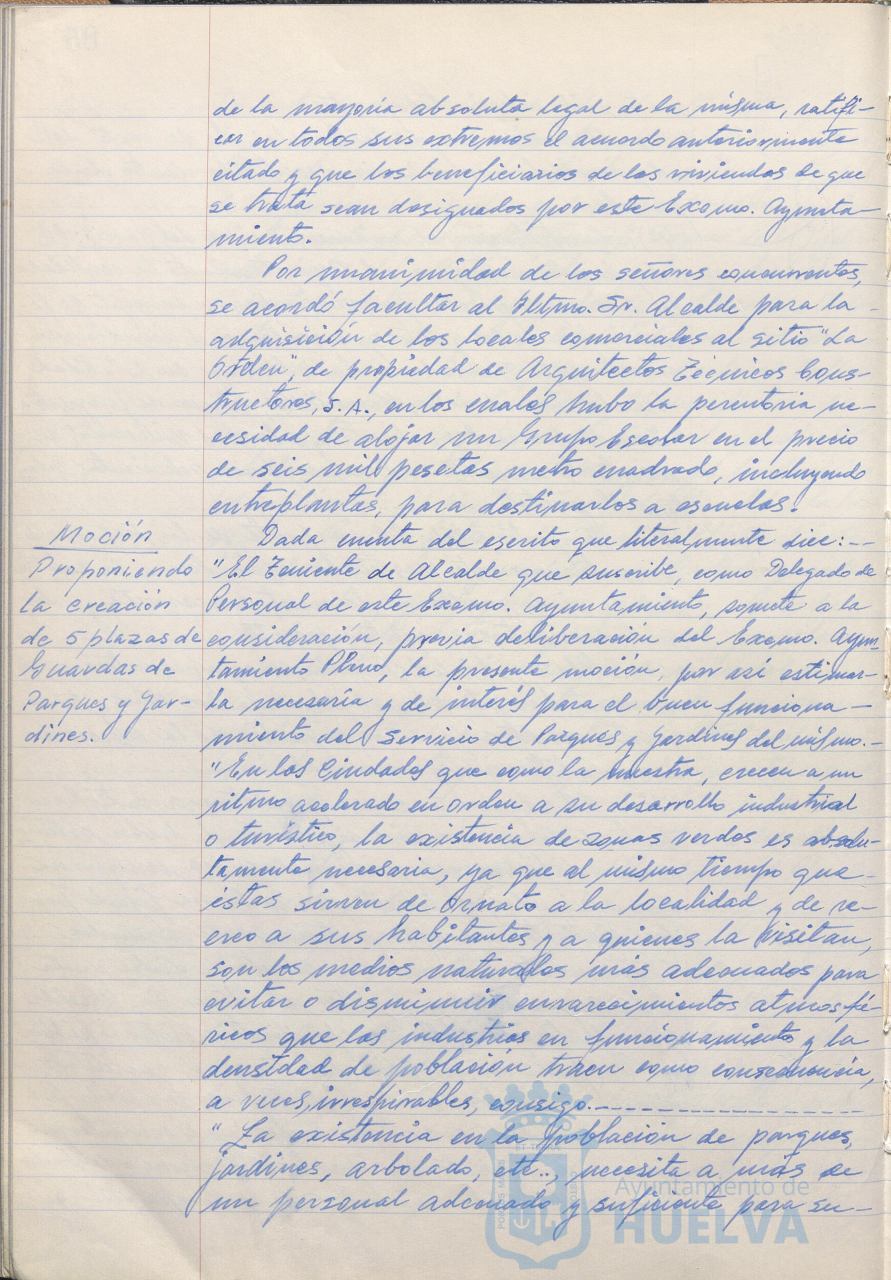 de la mayoría absoluta legal de la misma, ratifi-
car en todos sus extremos el acuerdo anteriormente
citado y que los beneficiarios de las viviendas de que
se trata sean designados por este Excmo. Ayunta-
miento.
Por unanimidad de los señores concurrentes,
se acordó facultar al Iltmo. Sr. Alcalde para la
adquisición de los locales comerciales al sitio "La
Orden", de propiedad de Arquitectos Técnicos Cons-
tructores, S.A., en los cuales hubo la perentoria ne-
cesidad de alojar un Grupo Escolar en el precio
de seis mil pesetas metro cuadrado, incluyendo
entreplantas, para destinarlos a escuelas.
Moción
Proponiendo
la creación
de 5 plazas de
Guardas de
Parques y Jar-
dines.
Dada cuenta del escrito que literalmente dice:--
"El Teniente de Alcalde que suscribe, como Delegado de
Personal de este Excmo. Ayuntamiento, somete a la
consideración, previa deliberación del Excmo. Ayun-
tamiento Pleno, la presente moción, por así estimar-
la necesaria y de interés para el buen funciona-
miento del Servicio de Parques y Jardines del mismo.-
"En las Ciudades que como la nuestra, crecen a un
ritmo acelerado en orden a su desarrollo industrial
o turístico, la existencia de zonas verdes es absolu-
tamente necesaria, ya que al mismo tiempo que
éstas sirven de ornato a la localidad y de re-
creo a sus habitantes y a quienes la visitan,
son los medios naturales más adecuados para
evitar o disminuir enrarecimientos atmosfé-
ricos que las industrias en funcionamiento y la
densidad de población traen como consecuencia,
a veces, irrespirables, consigo.-
"La existencia en la población de parques,
jardines, arbolado, etc., necesita a más de
un personal adecuado y suficiente para su-
Ayuntamiento de
HUELVA